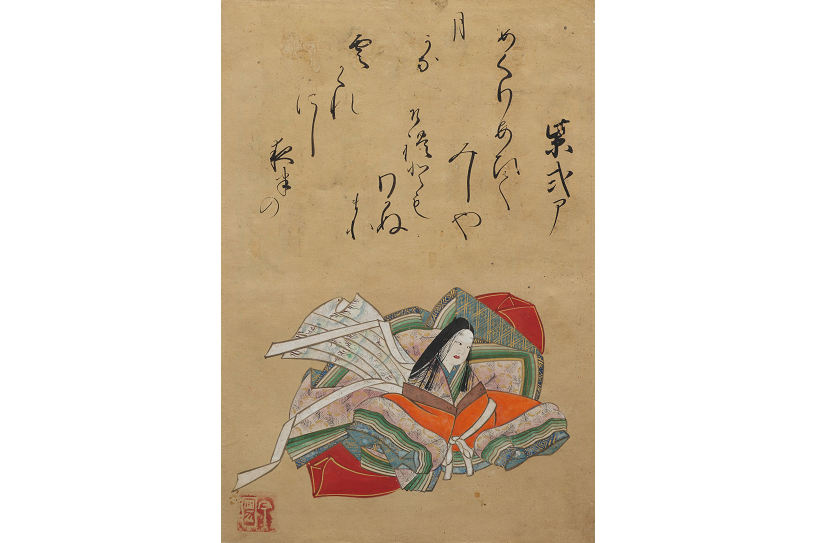 紫式部
めくりあひて
みしや
それとも
わかぬ
まに
雲かくれ
にし
夜半の
月
かな